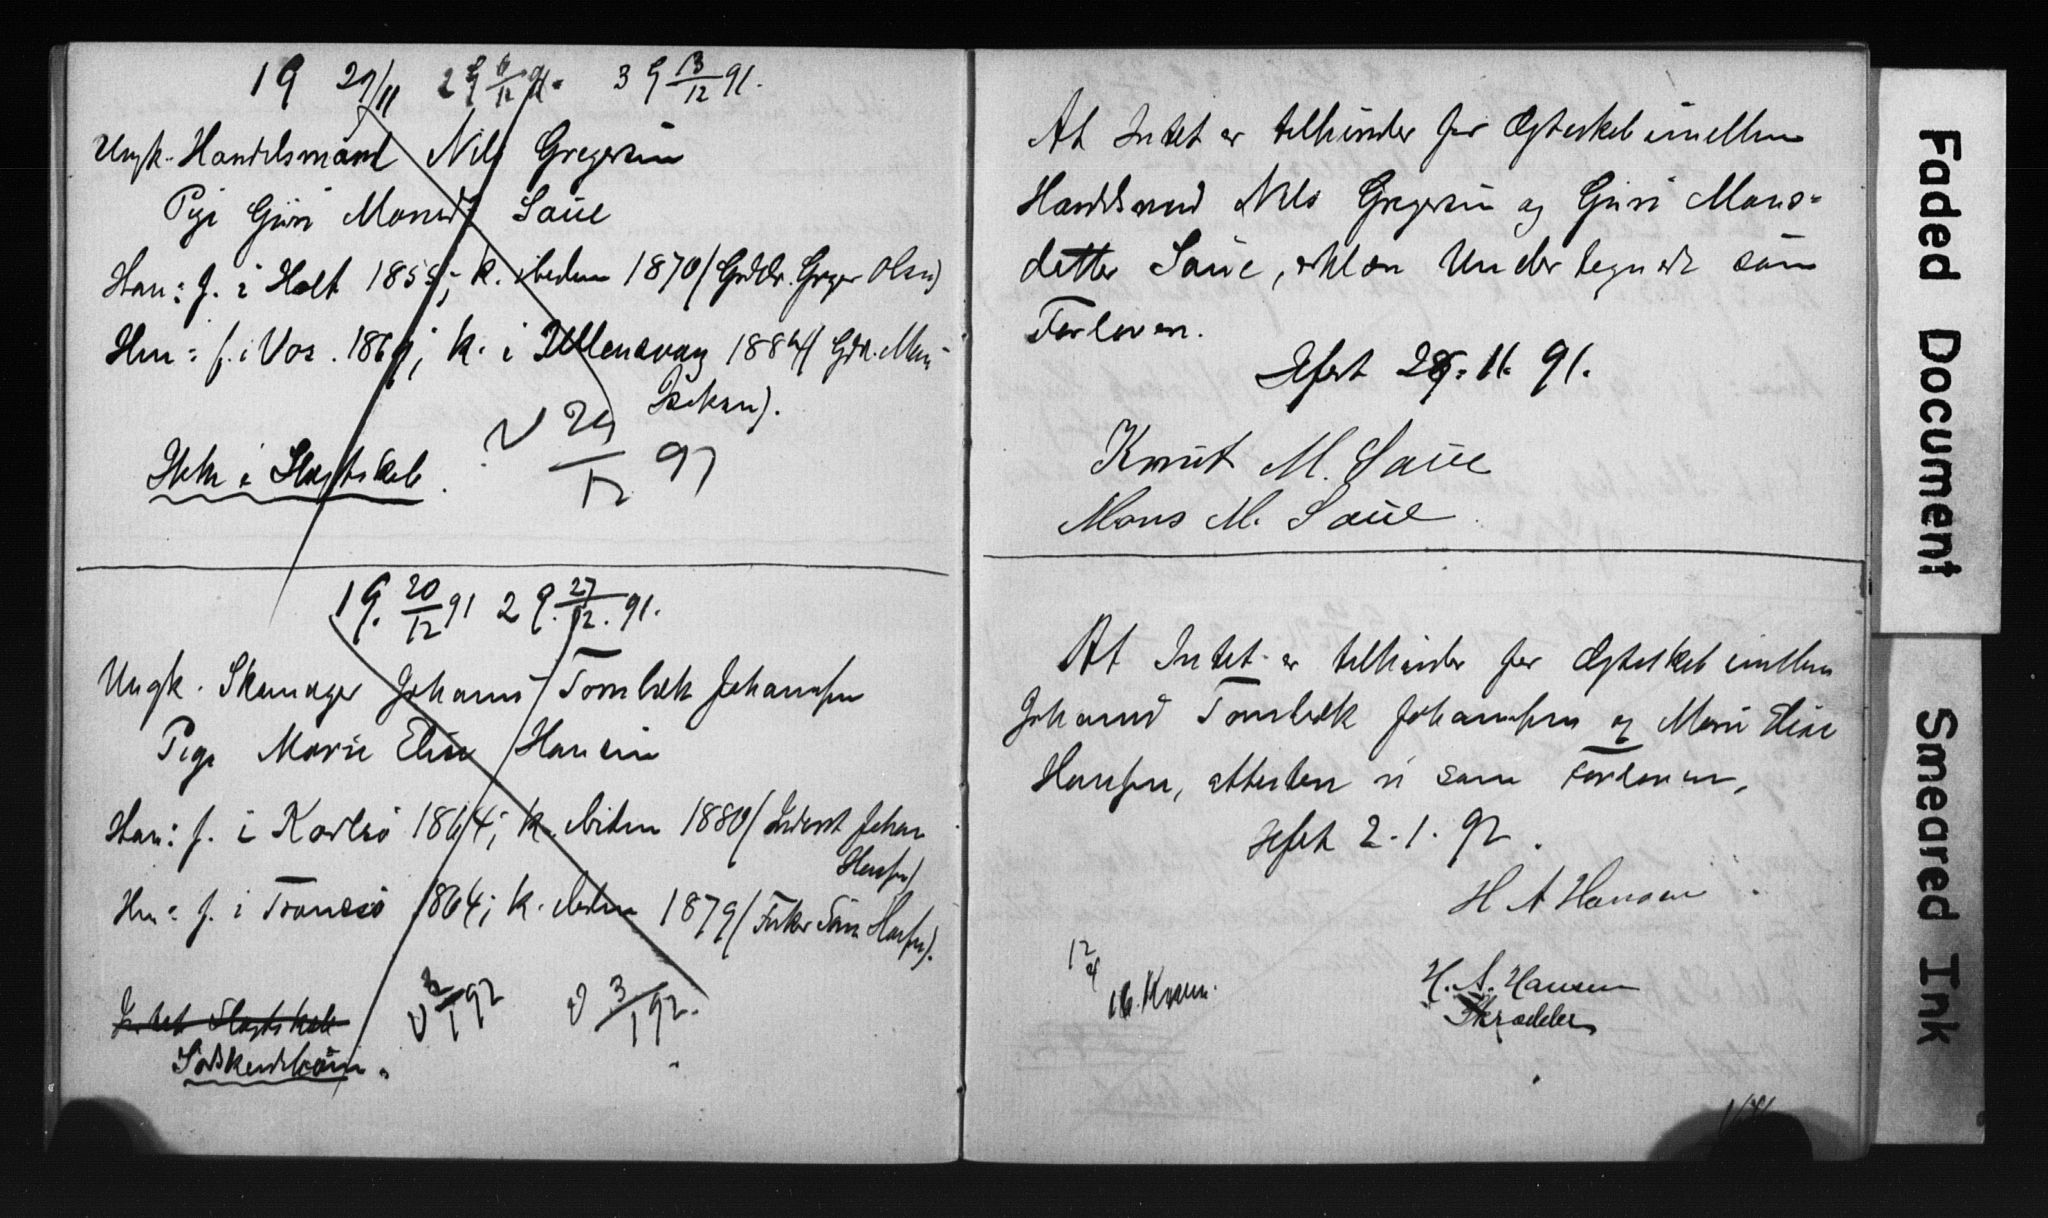 1 G 29/11 2 G 6/12 91. 3 G 13/12 91.
Ungk. Handelsmand Nils Gregersen
Pige Guri Monsd. Saue
Han: f. i Holt 1855; k. ibidem 1870 (Grdbr. Greger Olsen)
Hun: f. i Vos. 1864; k. i Ullensvang 1884 (Grdr. Mons
Isaksen).
V 29/12 91
Ikke i Slægtskab.
1 G. 20/12 91 2 G. 27/12. 91.
Ungk. Skomager Johannes Tornbæk Johannesen
Pige Marie Elise Hansen
Han: f. i Karlsö 1864; k. ibidem 1880 (Inderst Johan
Hansen)
Hun: f. i Tromsö 1864; k. ibidem 1879 (Fisker Hansen).
Intet Slægtskab
Södskendebörn.
V 3/1 92 V 3/1 92.
At Intet er tilhinder for Ægteskab imellem
Handelsmand Nils Gregersen og Guri Mons-
datter Saue, erklærer Undertegnede som
Forlovere.
Hefte 28. 11. 91.
Knut M. Saue
Mons M. Saue
At Intet er tilhinder for Ægteskab imellem
Johannes Tornbæk Johannesen og Marie Elise
Hansen, attesterer vi som Forlovere,
2. 1. 92.
H A Hansen
12/4
H. A. Hansen
Skrædder
Faded Document
Smeared Ink